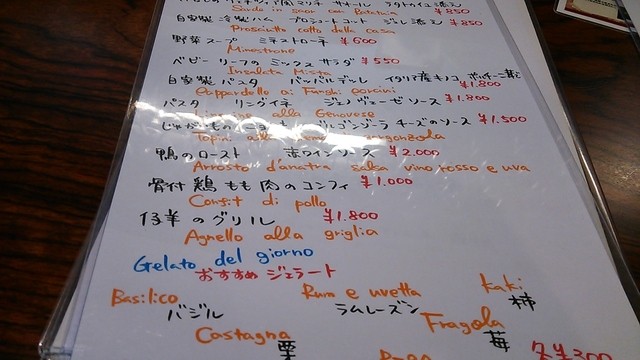 Sarde in saor con Patatina ¥850
自家製 冷製ハム プロシュートコート ジュレ添え ¥850
Prosciatto cotto della casa
野菜スープ ミネストローネ ¥600
Minestrone
ベビーリーフの ミックス サラダ ¥550
Insalata Mista
自家製 パスタ パッパルデッレ イタリア産キノコ ポルチーニ
¥1.800
Pappardello ai Funghi porcini
パスタ リングイネ ジェノヴェーゼソース ¥1.800
alla Genovese
ゴルゴンゾーラ チーズのソース ¥1.500
鴨のロースト 赤ワインソース ¥2.000
Arrosto d'anatra salsa vino rosso e uva
骨付 鶏もも肉のコンフィ ¥1.000
Confit di pollo
仔羊のグリル ¥1.800
Agnello alla griglia
Gelato del giorno
おすすめ ジェラート
Basilico Rum e uvetta Kaki
バジル ラムレーズン 柿
Castagna Fragola
栗 苺
¥300